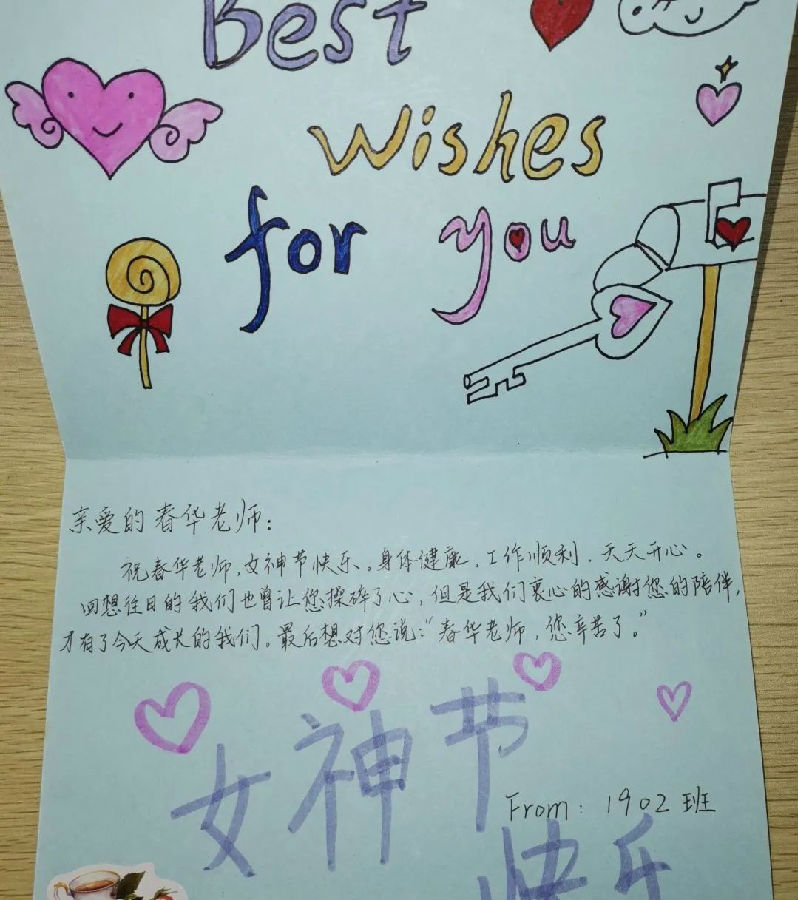 Best
Wishes
for you
亲爱的春华老师:
祝春华老师,女神节快乐。身体健康,工作顺利,天天开心。
回想往日的我们也曾让您操碎了心,但是我们衷心的感谢您的陪伴,
才有了今天成长的我们。最后想对您说:“春华老师,您辛苦了。”
女神节
From: 1902班
快乐